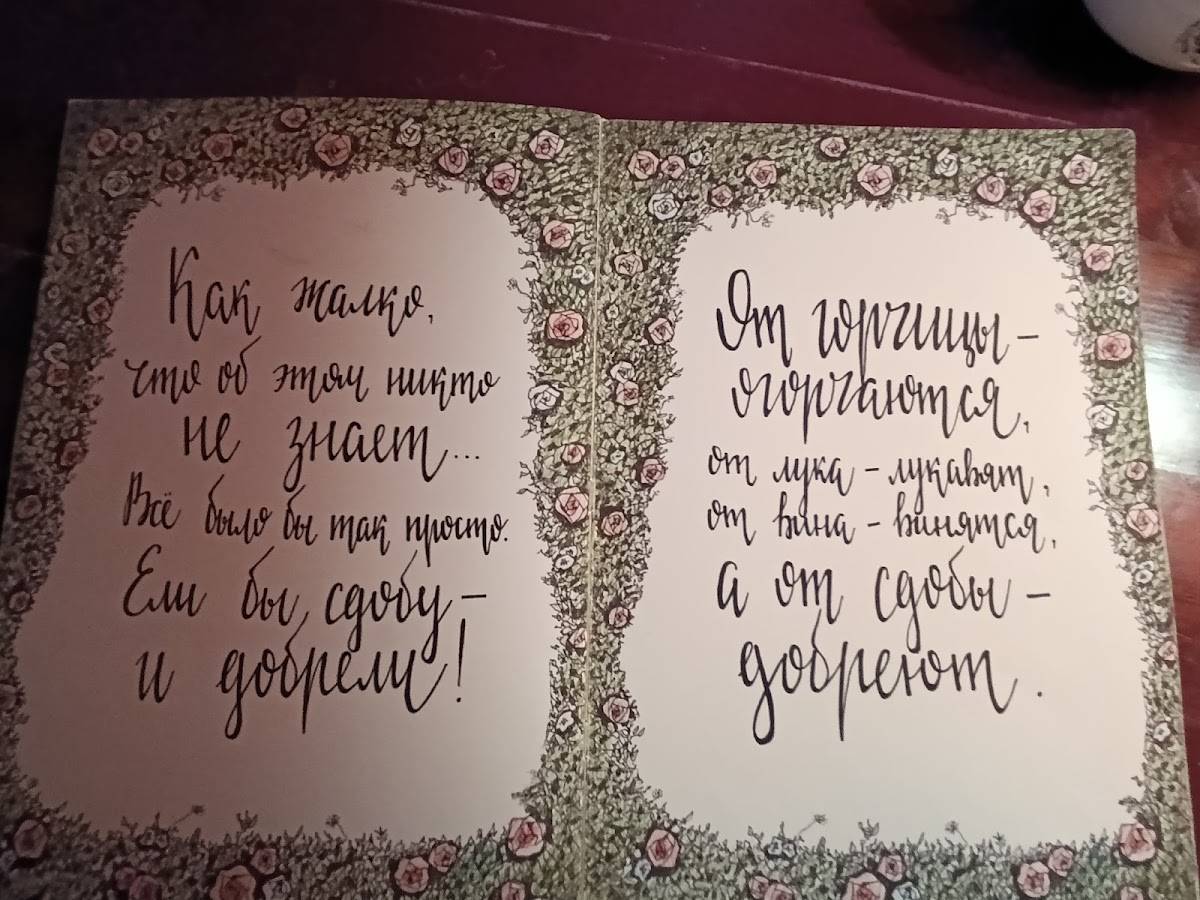 Как жалко,
что об этом никто
не знает...
Всё было бы так просто.
Ели бы сдобу –
и добрели!
От горчицы –
огорчаются,
от лука – лукавят,
от вина – винятся,
а от сдобы –
добреют.